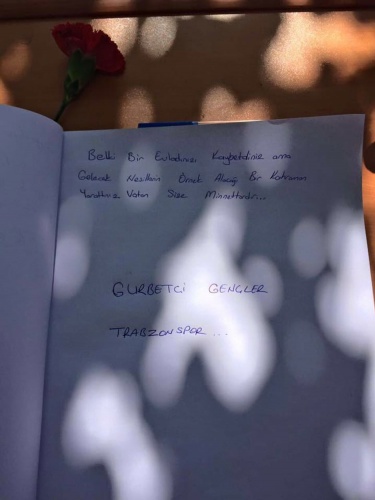 Belki Bir Evladınızı Kaybettiniz ama
Gelecek Nesillerin Örnek Alacağı Bir Kahraman
Yarattınız Vatan Size Minnettardır...
GURBETÇİ GENÇLER
TRABZONSPOR...